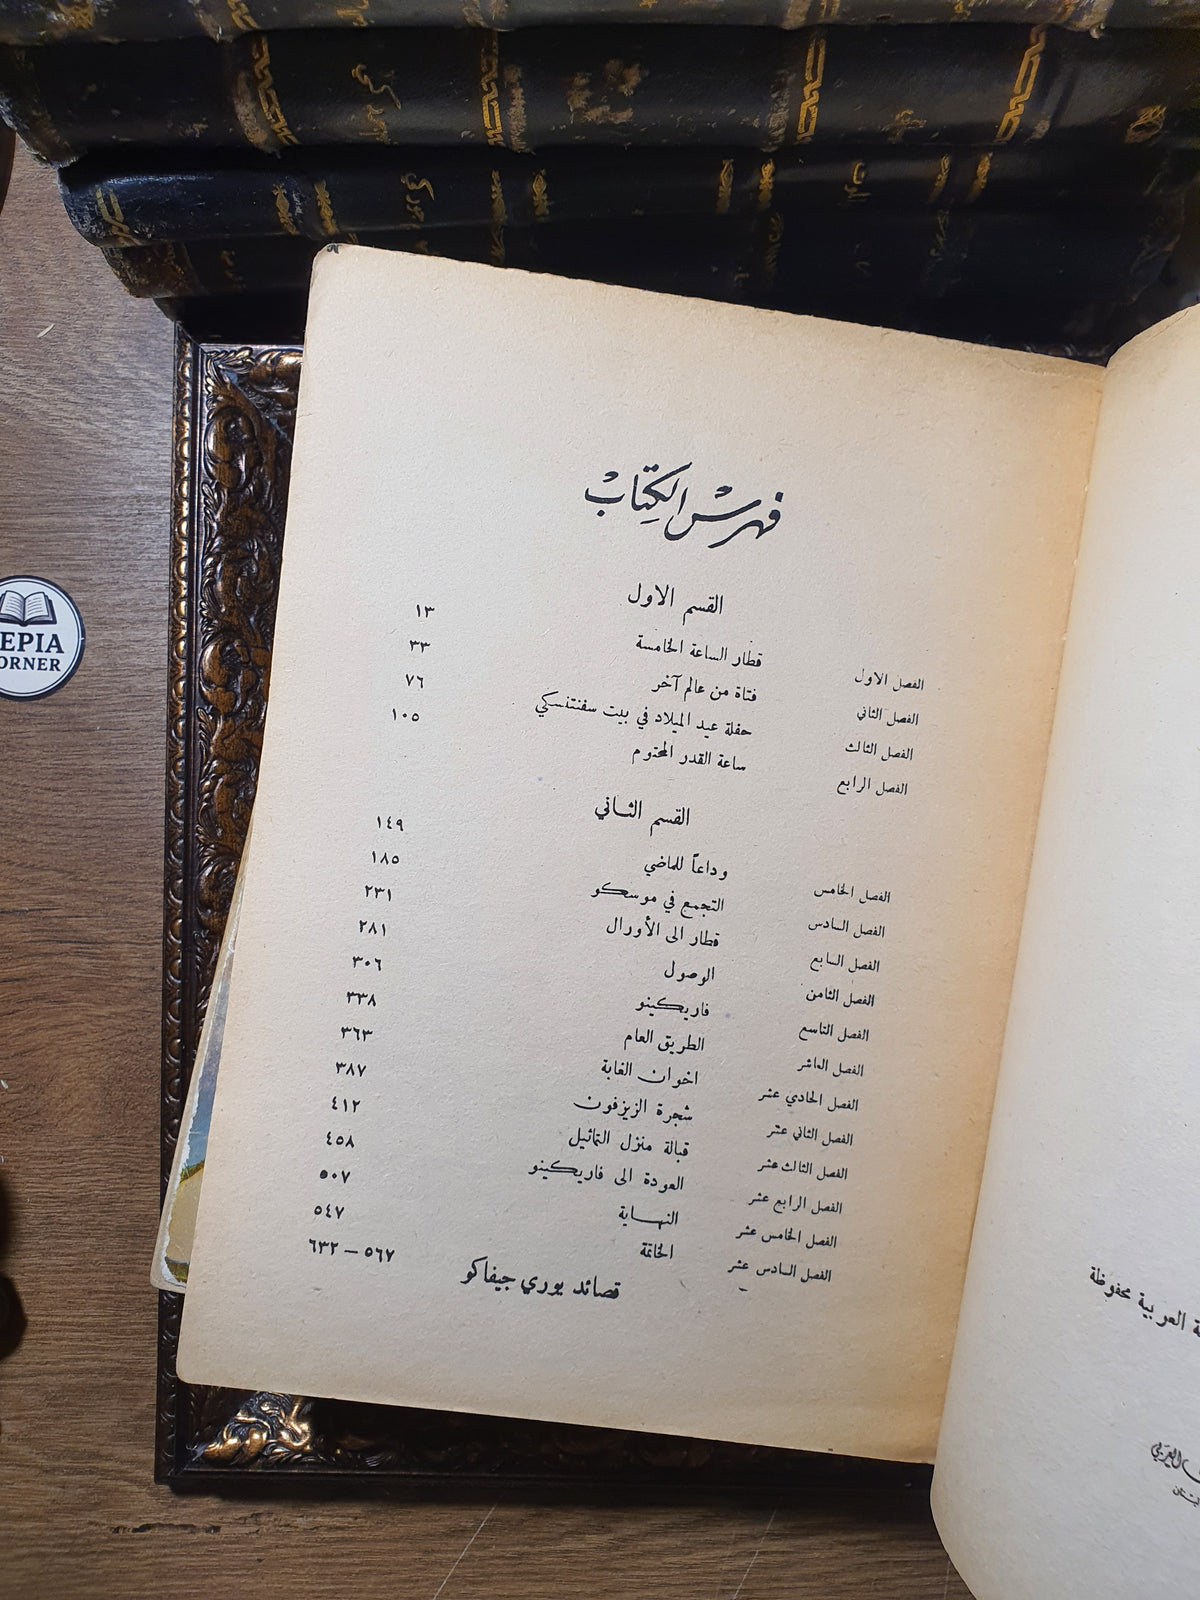 فهرس الكتاب
القسم الاول
الفصل الاول قطار الساعة الخامسة ١٣
الفصل الثاني فتاة من عالم آخر ٣٣
الفصل الثالث حفلة عيد الميلاد في بيت سفنتنسكي ٧٦
الفصل الرابع ساعة القدر المحتوم ١٠٥
القسم الثاني
الفصل الخامس وداعاً للماضي ١٤٩
الفصل السادس التجمع في موسكو ١٨٥
الفصل السابع قطار الى الأورال ٢٣١
الفصل الثامن الوصول ٢٨١
الفصل التاسع فاريكينو ٣٠٦
الفصل العاشر الطريق العام ٣٣٨
الفصل الحادي عشر اخوان الغابة ٣٦٣
الفصل الثاني عشر شجرة الزيزفون ٣٨٧
الفصل الثالث عشر قبالة منزل التماثيل ٤١٢
الفصل الرابع عشر العودة الى فاريكينو ٤٥٨
الفصل الخامس عشر النهاية ٥٠٧
الفصل السادس عشر الخاتمة ٥٤٧
قصائد يوري جيفاكو ٥٦٧ – ٦٣٢
العربية محفوظة
EPIA
ORNER